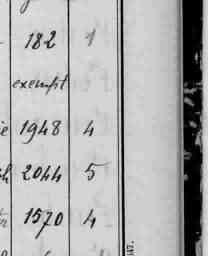 182 1
exempt
1948 4
2044 5
1570 4
147.